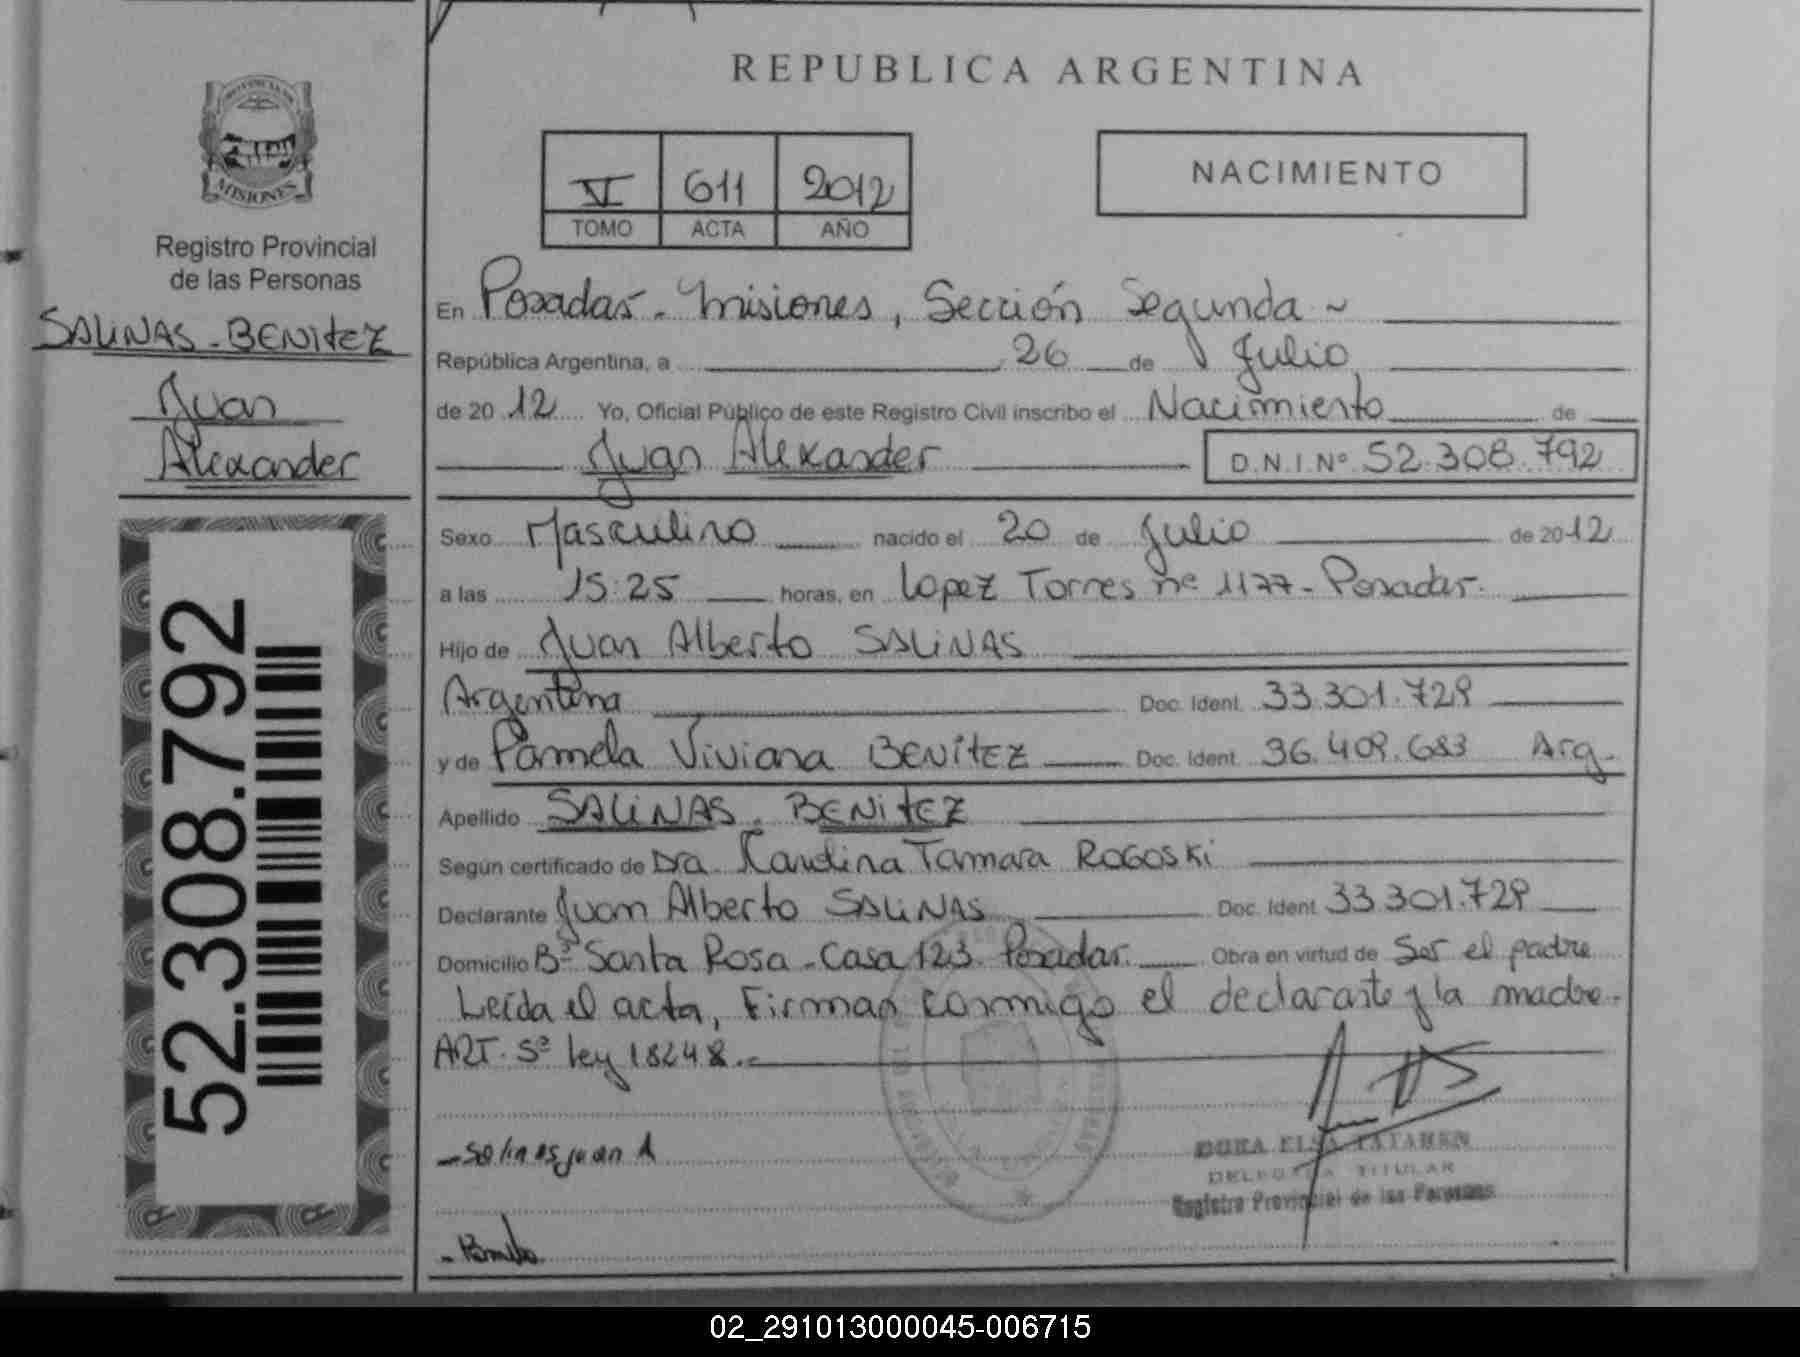 PROVINCIA DE
MISIONES
Registro Provincial
de las Personas
SALINAS - BENITEZ
Juan
Alexander
52.308.792
REPUBLICA ARGENTINA
VI 611 2012
TOMO ACTA AÑO
NACIMIENTO
En Posadas - Misiones, Sección Segunda ~
República Argentina, a 26 de Julio
de 2012 Yo, Oficial Público de este Registro Civil inscribo el Nacimiento de
Juan Alexander D.N.I.Nº 52.308.792
Sexo Masculino nacido el 20 de Julio de 2012
a las 15:25 horas, en Lopez Torres nº 1177 - Posadas.
Hijo de Juan Alberto SALINAS
Argentina Doc. Ident. 33.301.729
y de Pamela Viviana BENITEZ Doc. Ident. 36.409.683 Arg.
Apellido SALINAS - BENITEZ
Según certificado de Dra. Karolina Tamara ROGOSKI
Declarante Juan Alberto SALINAS Doc. Ident. 33.301.729
Domicilio Bº Santa Rosa - Casa 123. Posadas. Obra en virtud de Ser el padre
Leída el acta, Firman conmigo el declarante y la madre.
ART. 5º ley 18248.-
- Salinas juan A
DORA ELSA TATAREN
DELEGADA TITULAR
Registro Provincial de las Personas
02_291013000045-006715